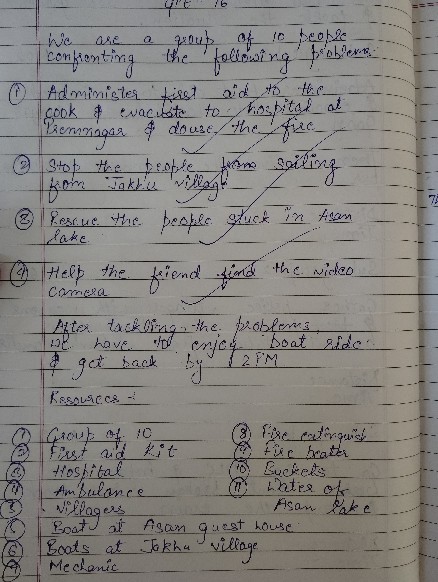 We are a group of 10 people
confronting the following problems
① Administer first aid to the
cook & evacuate to hospital at
Premnagar & douse the fire
② Stop the people from sailing
from Jakhu village
③ Rescue the people stuck in Asan
lake
④ Help the friend find the video
camera
After tackling the problems,
we have to enjoy boat ride
& get back by 2 PM
Resources :-
① Group of 10
② First aid kit
③ Hospital
④ Ambulance
⑤ Villagers
⑥ Boat at Asan guest house
⑥ Boats at Jakhu village
⑦ Mechanic
⑧ Fire extinguish
⑨ Fire beater
⑩ Buckets
⑪ Water of
Asan lake